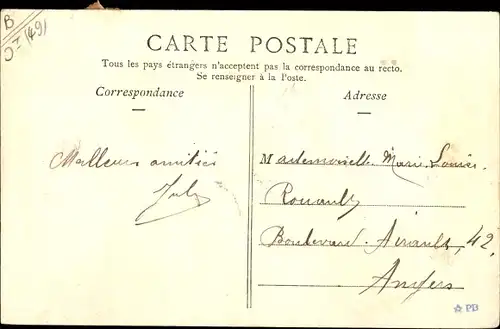 B
OI (49)
CARTE POSTALE
Tous les pays étrangers n'acceptent pas la correspondance au recto.
Se renseigner à la Poste.
Correspondance
Adresse
Meilleurs amitiés
Mademoiselle Marie-Louise
Rouault
Boulevard Ayrault, 42,
Angers
PB